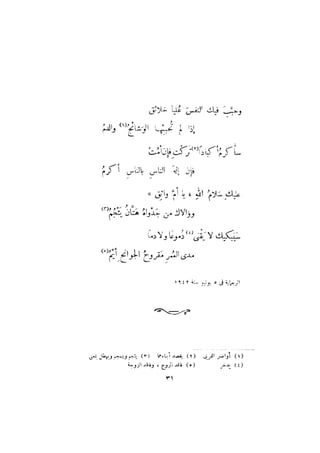 وحبَّب فيك النفسَ عُليا خلائق
إذا لم تُحبِّبها الوشائجُ (١) والدمُ
سأكرمُ أكبادًا (٢) تركتِ فإن أمُتْ
فإن إلهَ الناسِ بالناسِ أكرمُ
عليكِ سَلامُ اللهِ ، يا أمَّ واثق *
ووَالاكِ من جَدْواهُ هَتَّانُ يَثْجُمُ (٣)
سَيبكيكِ لا يَقْنَى (٤) دُموعًا ولا دمًا
مدى العُمرِ مَقروحُ الجوانحِ أيِّمُ (٥)
في ٥ يونيو سنة ١٩٤٢
(١) أواصر القربى (٢) يقصد أبناءها (٣)
(٤) يدخر (٥) فاقد الزوج ، وفاقد الزوجة
٣١